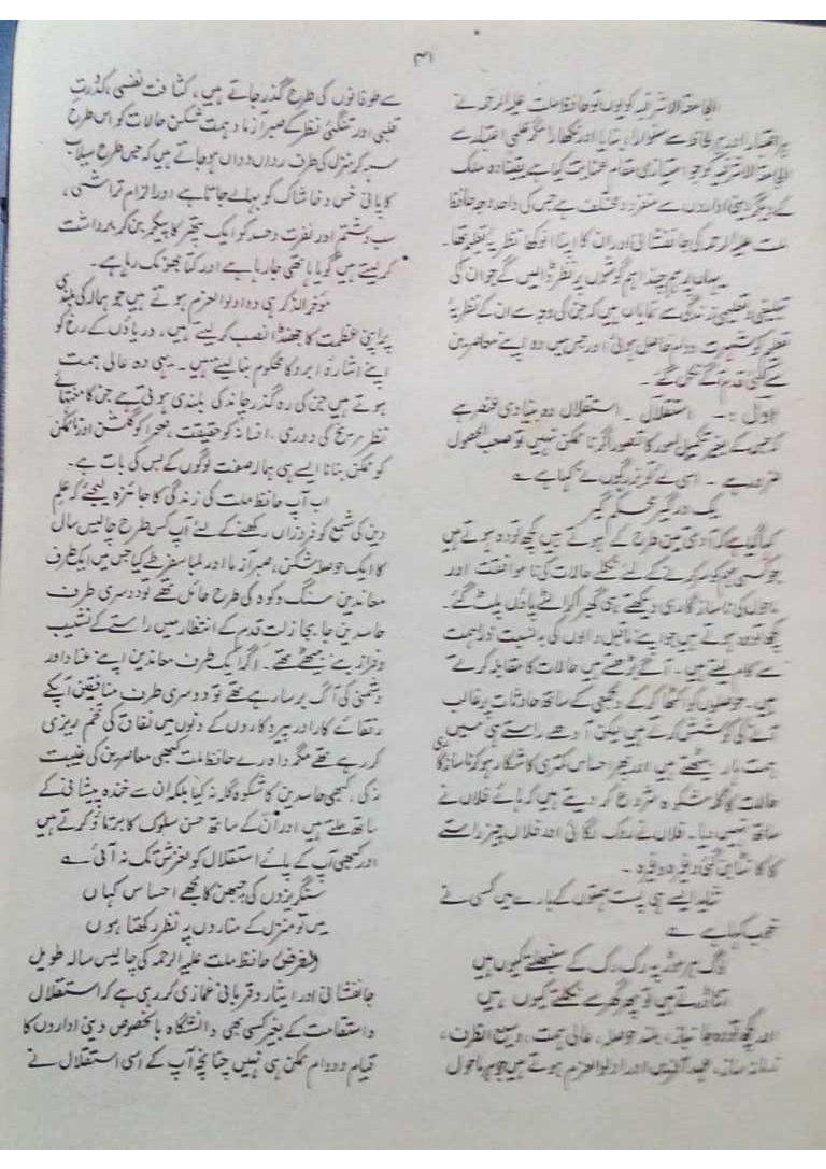 ۴۱
الجامعۃ الاشرفیہ کو یوں تو حافظ ملت علیہ الرحمہ نے
ہر اعتبار اور ہر لحاظ سے سنوارا، بنایا اور نکھارا مگر علمی اعتبار سے
الجامعۃ الاشرفیہ کو جو امتیازی مقام عنایت کیا ہے یقینا وہ ملک
کے دیگر دینی اداروں سے منفرد و مختلف ہے جس کی واحد وجہ حافظ
ملت علیہ الرحمہ کی جانفشانی اور ان کا اپنا انوکھا نظریہ تعلیم تھا۔
یہاں پر ہم چند اہم گوشوں پر نظر ڈالیں گے جو ان کی
تعلیمی زندگی سے نمایاں ہیں کہ جن کی وجہ سے ان کے نظریۂ
تعلیم کو شہرت دوام حاصل ہوئی اور جس میں وہ اپنے معاصرین
سے کئی قدم آگے نکل گئے۔
اول :۔ استقلال ۔ استقلال وہ بنیادی عنصر ہے
کہ جس کے بغیر تکمیل امور کا تصور اگر ناممکن نہیں تو صعب الحصول
ضرور ہے ۔ اسی لئے تو بزرگوں نے کہا ہے ؎
یک در گیر محکم گیر
کہا گیا ہے کہ آدمی تین طرح کے ہوتے ہیں کچھ تو وہ ہوتے ہیں
جو کسی مہم کو سر کرنے کے لئے نکلے حالات کی نا موافقت اور
ماحول کی ناسازگاری دیکھتے ہی گھبرا کر الٹے پاؤں پلٹ گئے۔
کچھ تو وہ ہوتے ہیں جو اپنے ماقبل والوں کی بہ نسبت ذرا ہمت
سے کام لیتے ہیں ۔ آگے بڑھتے ہیں حالات کا مقابلہ کرتے
ہیں ۔ حوصلوں کو اکٹھا کر کے دلجمعی کے ساتھ حادثات پر غالب
آنے کی کوشش کرتے ہیں لیکن آدھے راستے ہی میں
ہمت ہار بیٹھتے ہیں اور پھر احساس کمتری کا شکار ہو کر ناسازگار
حالات کا گلہ شکوہ شروع کر دیتے ہیں کہ ہائے فلاں نے
ساتھ نہیں دیا۔ فلاں نے روک لگائی اور فلاں چیز راستے
کا کانٹا بن گئی وغیرہ وغیرہ ۔
شاید ایسے ہی پست ہمتوں کے بارے میں کسی نے
خوب کہا ہے ؎
لوگ ہر موڑ پہ رک رک کے سنبھلتے کیوں ہیں
اتنا ڈرتے ہیں تو پھر گھر سے نکلتے کیوں ہیں
اور کچھ تو وہ جانباز، بلند حوصلہ، عالی ہمت، وسیع الظرف،
اور اولوالعزم ہوتے ہیں جو ہر ماحول
سے طوفانوں کی طرح گذر جاتے ہیں، کثافت نفسی، کدورت
قلبی اور تنگئی نظر کے صبر آزما و ہمت شکن حالات کو اس طرح
سر کر منزل کی طرف رواں دواں ہو جاتے ہیں کہ جس طرح سیلاب
کا پانی خس و خاشاک کو بہالے جاتا ہے اور الزام تراشی،
سب و شتم اور نفرت و حسد کو ایک پتھر کا پیکر بن کر برداشت
کر لیتے ہیں گویا ہاتھی جا رہا ہے اور کتا بھونک رہا ہے۔
مؤخر الذکر ہی وہ اولوالعزم ہوتے ہیں جو ہمالہ کی بلندی
پر اپنی عظمت کا جھنڈا نصب کر لیتے ہیں ۔ دریاؤں کے رخ کو
اپنے اشارۂ ابرو کا محکوم بنا لیتے ہیں ۔ یہی وہ عالی ہمت
ہوتے ہیں جن کی رہ گذر چاند کی بلندی ہوتی ہے جن کا منتہائے
نظر مریخ کی دوری، افسانہ کو حقیقت، صحرا کو گلشن اور ناممکن
کو ممکن بنانا ایسے ہی ہمالہ صفت لوگوں کے بس کی بات ہے۔
اب آپ حافظ ملت کی زندگی کا جائزہ لیجئے کہ علم
دین کی شمع کو فروزاں رکھنے کے لئے آپ کس طرح چالیس سال
کا ایک حوصلہ شکن، صبر آزما اور لمبا سفر طے کیا جس میں ایک طرف
معاندین سنگ و کوہ کی طرح حائل تھے تو دوسری طرف
حاسدین جابجا زلت قدم کے انتظار میں راستے کے نشیب
و فراز پے بیٹھے تھے۔ اگر ایک طرف معاندین اپنے عناد اور
دشمنی کی آگ برسا رہے تھے تو دوسری طرف منافقین آپکے
رفقائے کار اور پیروکاروں کے دلوں میں نفاق کی تخم ریزی
کر رہے تھے مگر واہ رے حافظ ملت کبھی معاصرین کی غیبت
نہ کی، کبھی حاسدین کا شکوہ گلہ نہ کیا بلکہ ان سے خندہ پیشانی کے
ساتھ ملتے ہیں اور ان کے ساتھ حسن سلوک کا برتاؤ کرتے ہیں
اور کبھی آپ کے پائے استقلال کو لغزش تک نہ آئی ؎
سنگریزوں کی چبھن کا مجھے احساس کہاں
میں تو منزل کے مناروں پہ نظر رکھتا ہوں
الغرض حافظ ملت علیہ الرحمہ کی چالیس سالہ طویل
جانفشانی اور ایثار و قربانی غمازی کر رہی ہے کہ استقلال
و استقامت کے بغیر کسی بھی دانشگاہ بالخصوص دینی اداروں کا
قیام و دوام ممکن ہی نہیں چنانچہ آپ کے اسی استقلال نے